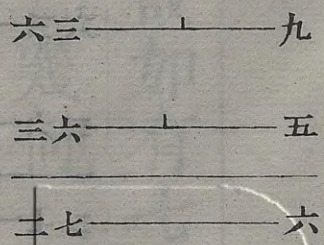 六三九
三六五
二七六